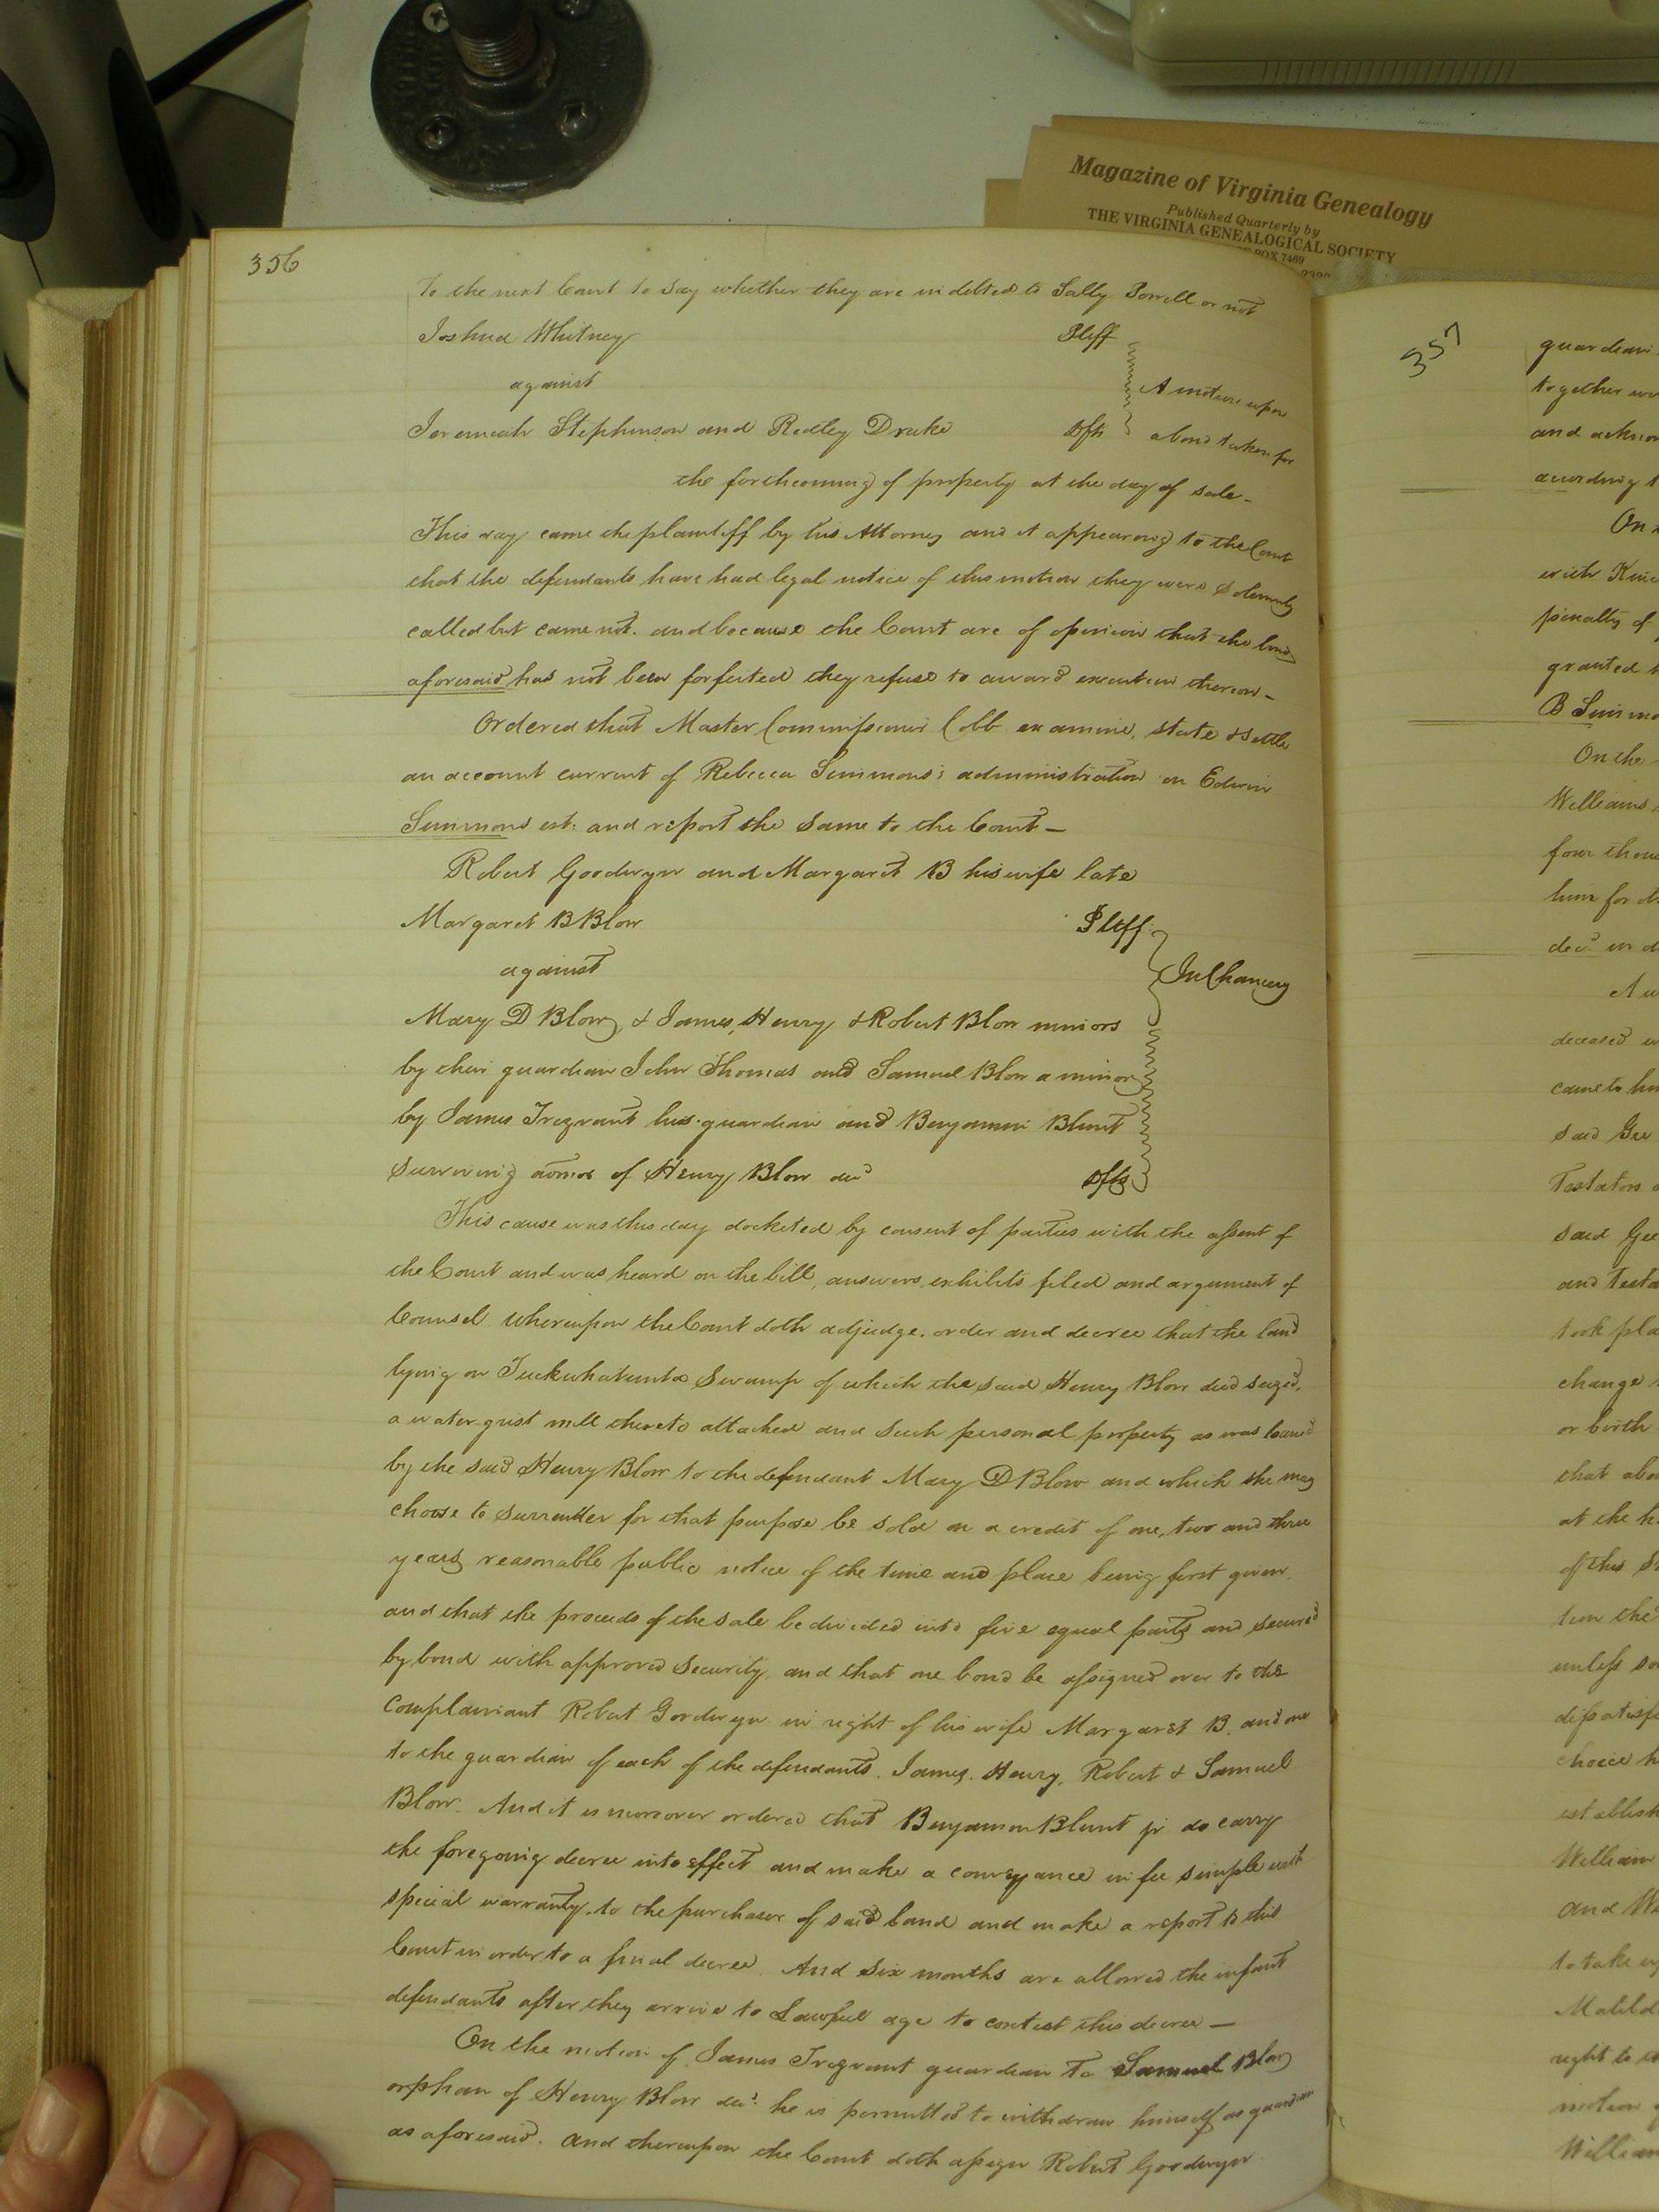 Magazine of Virginia Genealogy
Published Quarterly by
THE VIRGINIA GENEALOGICAL SOCIETY
BOX 7469
356
to the next Court to say whether they are indebted to Sally Powell or not
Joshua Whitney Pltff
against
A motion upon
Jeremiah Stephenson and Redley Drake Dfts
a bond taken for
the forthcoming of property at the day of sale -
This day came the plaintiff by his Attorney and it appearing to the Court
that the defendants have had legal notice of this motion they were Solemnly
called but came not. and because the Court are of opinion that the bond
aforesaid has not been forfeited they refuse to award execution thereon -
Ordered that Master Commissioner Cobb examine, state & settle
an account current of Rebecca Simmons's administration on Edwin
Simmons est: and report the same to the Court -
Robert Goodwyn and Margaret B his wife late
Margaret B Blow Pltff.
against
In Chancery
Mary D Blow, & James, Henry & Robert Blow minors
by their guardian John Thomas and Samuel Blow a minor
by James Trezvant his guardian and Benjamin Blunt
surviving admor of Henry Blow decd Dfts
This cause was this day docketed by consent of parties with the assent of
the Court and was heard on the bill, answers, exhibits filed and argument of
Counsel whereupon the Court doth adjudge, order and decree that the land
lying on Swamp of which the said Henry Blow died seized,
a water grist mill thereto attached and such personal property as was loaned
by the said Henry Blow to the defendant Mary D Blow and which she may
choose to surrender for that purpose be sold on a credit of one, two and three
years reasonable public notice of the time and place being first given.
and that the proceeds of the sale be divided into five equal parts and secured
by bond with approved security, and that one bond be assigned over to the
complainant Robert Goodwyn in right of his wife Margaret B. and one
to the guardian of each of the defendants. James. Henry, Robert & Samuel
Blow. And it is moreover ordered that Benjamin Blunt jr do carry
the foregoing decree into effect and make a conveyance in fee simple with
special warranty, to the purchaser of said land and make a report to this
Court in order to a final decree. And six months are allowed the infant
defendants after they arrive to Lawful age to contest this decree -
On the motion of James Trezvant guardian to Samuel Blow
orphan of Henry Blow decd. he is permitted to withdraw himself as guardian
as aforesaid. And thereupon the Court doth assign Robert Goodwyn
357
guardian
together
and
according t
On
with
penalty of
granted
B Simmo
On the
Williams
four thou
him for
decd. in
A
deceased
came to
said Gee
Testators
said Gee
and Testa
took pla
change
or birth
that
at the
of this
tion the
unless
choice
establish
William
and
to take
right to
motion
William